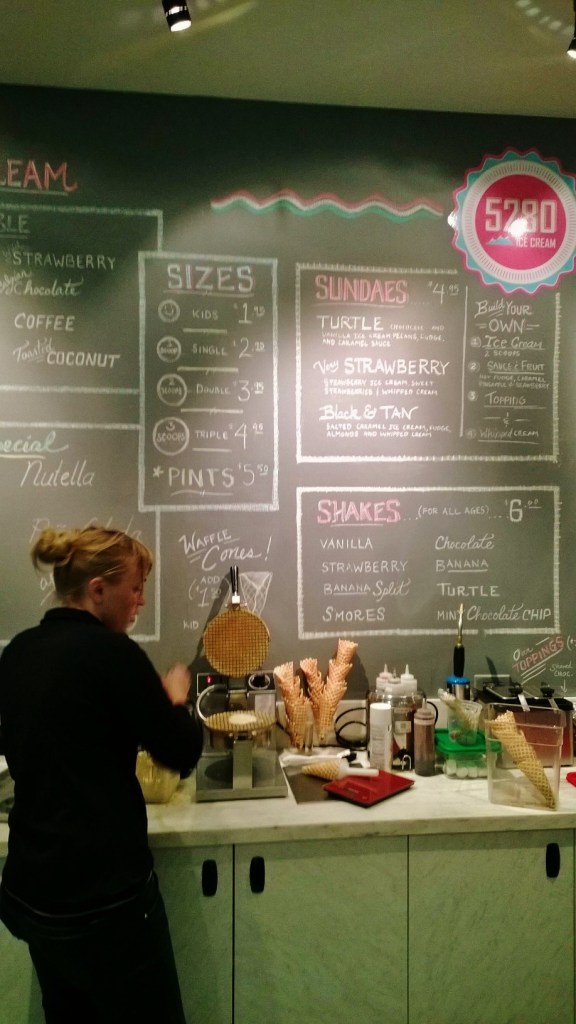 STRAWBERRY
Chocolate
COFFEE
Toasted COCONUT
Nutella
SIZES
KIDS $1
1 SCOOP SINGLE $2
2 SCOOPS DOUBLE $3
3 SCOOPS TRIPLE $4
*PINTS $5
WAFFLE
CONES!
ADD
KID
5280
ICE CREAM
SUNDAES $4
TURTLE CHOCOLATE AND
VANILLA ICE CREAM PECANS, FUDGE,
AND CARAMEL SAUCE
Very STRAWBERRY
STRAWBERRY ICE CREAM, SWEET
STRAWBERRIES & WHIPPED CREAM
Black & TAN
SALTED CARAMEL ICE CREAM, FUDGE,
ALMONDS AND WHIPPED CREAM
Build YOUR
OWN
1 ICE CREAM
2 SCOOPS
2 SAUCE & FRUIT
HOT FUDGE, CARAMEL
3 TOPPING
&
4 WHIPPED CREAM
SHAKES...(FOR ALL AGES) $6
VANILLA
STRAWBERRY
BANANA Split
SMORES
Chocolate
BANANA
TURTLE
MINT Chocolate CHIP
OUR
TOPPINGS